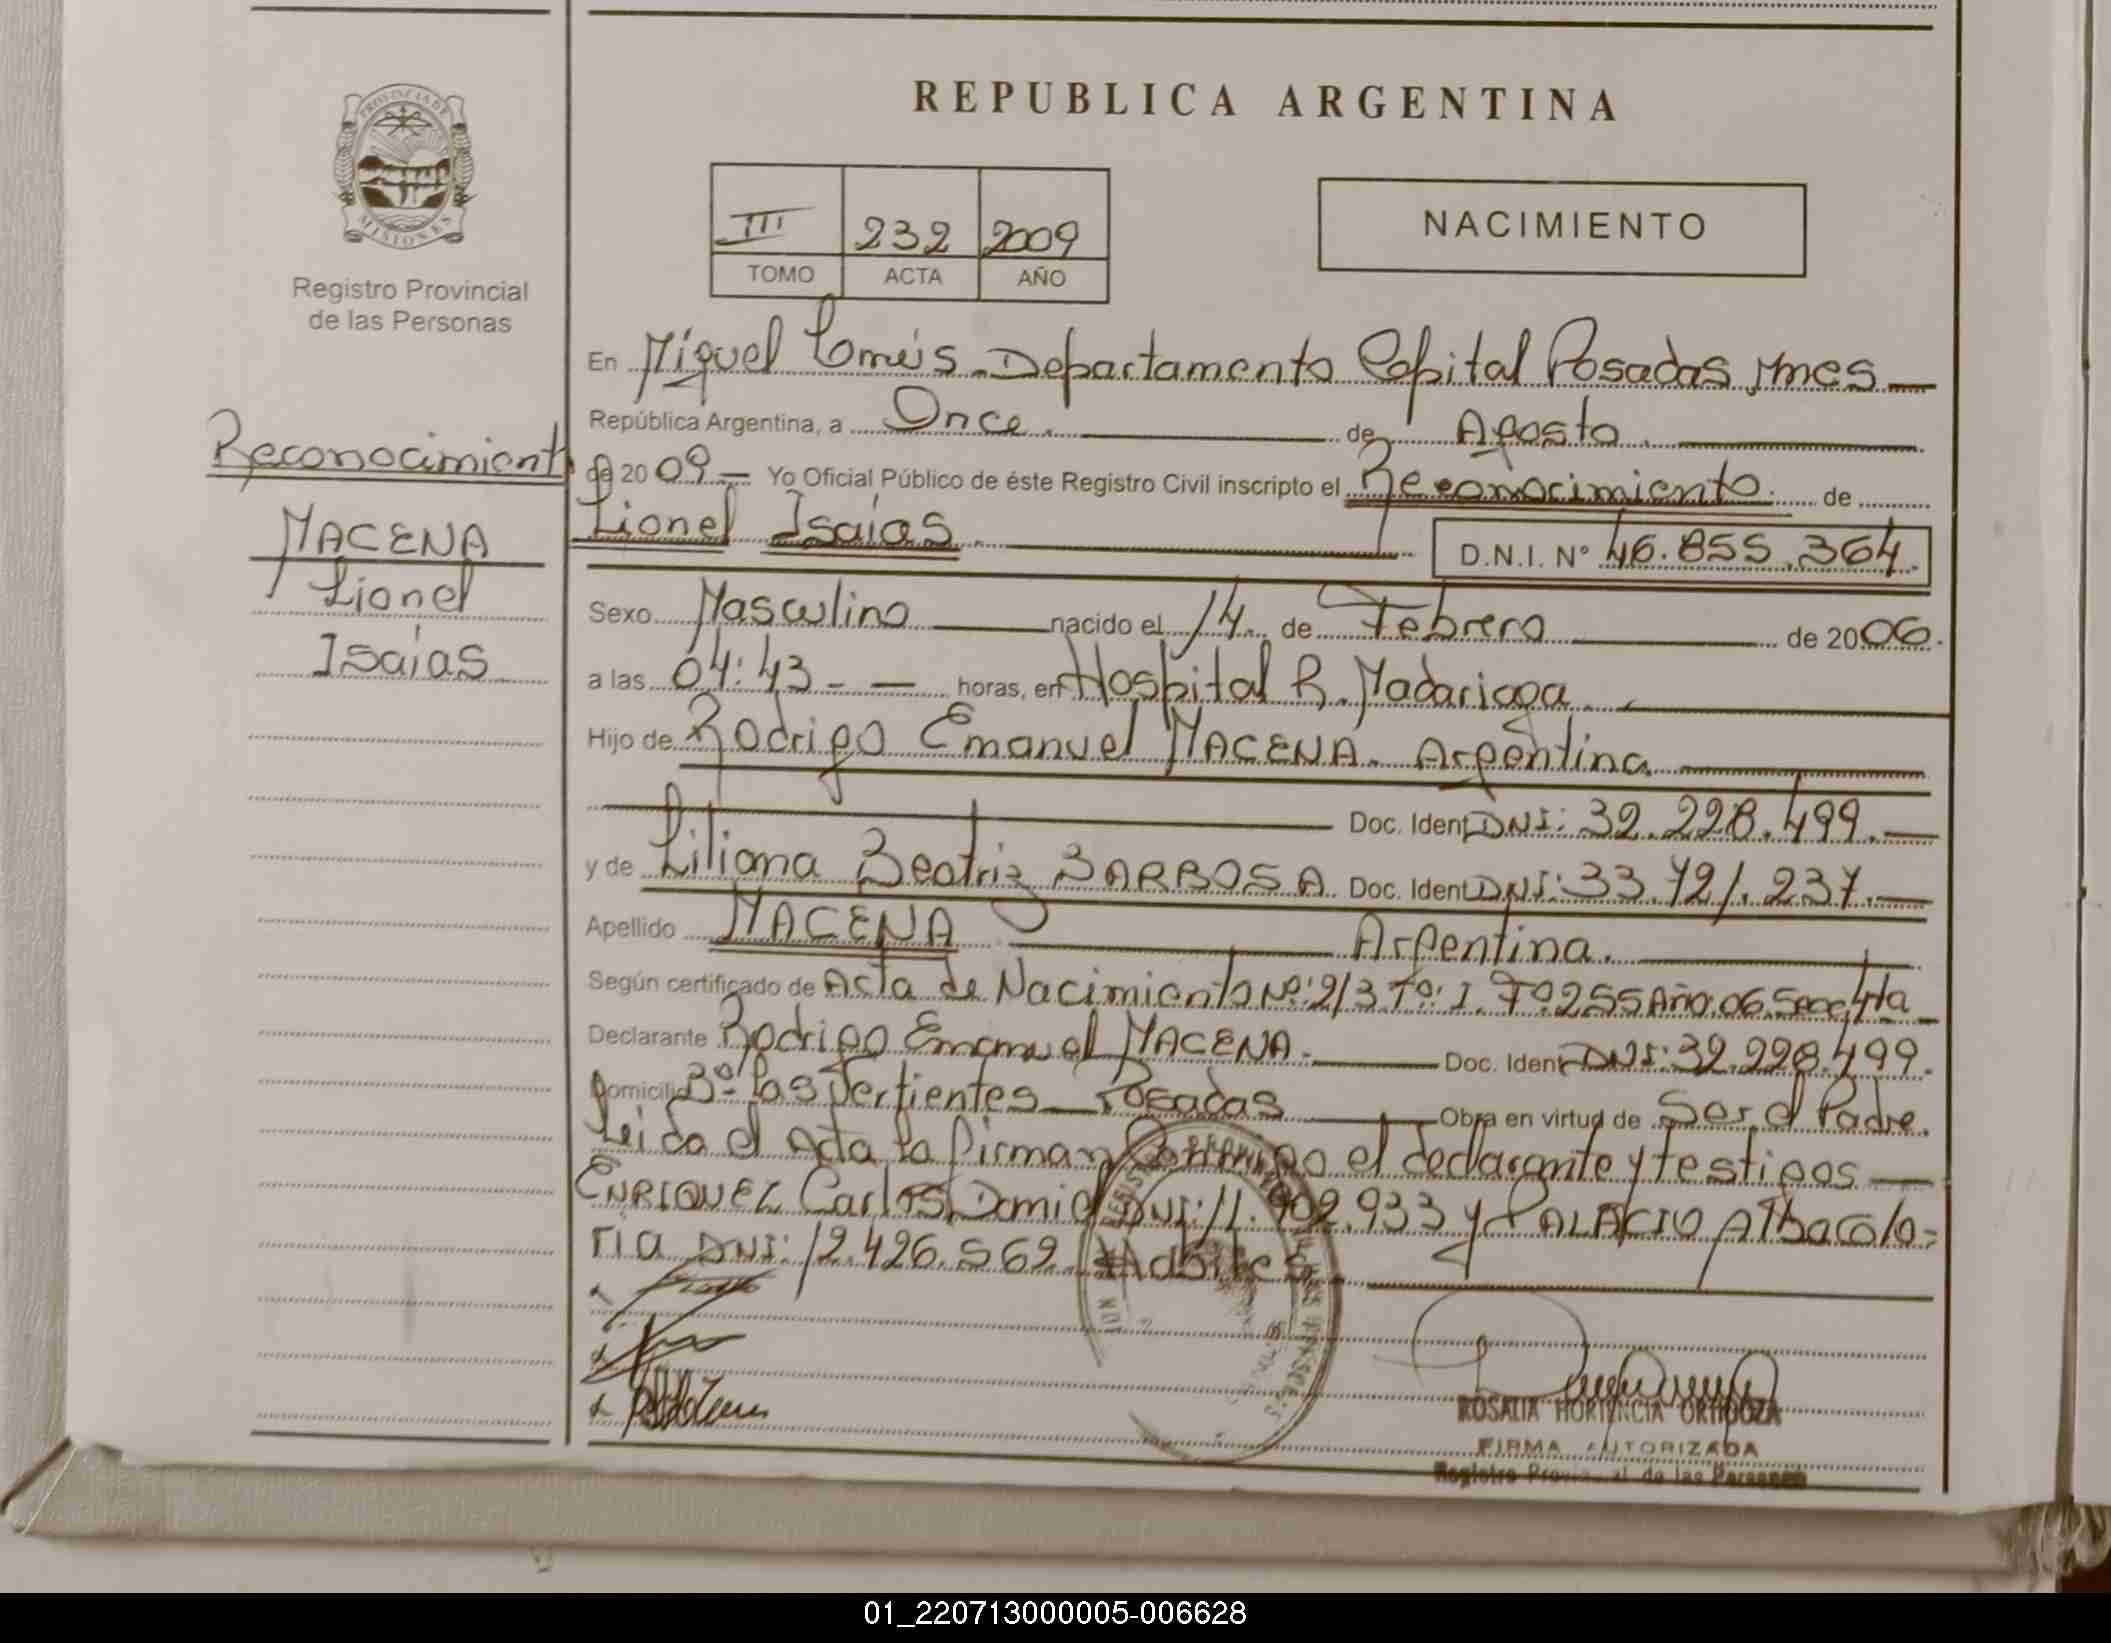 REPUBLICA ARGENTINA
PROVINCIA DE
MISIONES
Registro Provincial
de las Personas
III 232 2009
TOMO ACTA AÑO
NACIMIENTO
Reconocimient
MACENA
Lionel
Isaías
En Miguel Lanús - Departamento Capital Posadas Mnes
República Argentina, a Once de Agosto
de 2009 Yo Oficial Público de éste Registro Civil inscripto el Reconocimiento de
Lionel Isaías D.N.I. N° 46.855.364
Sexo Masculino nacido el 14 de Febrero de 2006.
a las 04:43 horas, en Hospital R. Madariaga
Hijo de Rodrigo Emanuel MACENA. Argentina
Doc. Ident DNI: 32.228.499.
y de Liliana Beatriz BARBOSA Doc. Ident DNI: 33.721.237.
Apellido MACENA Argentina.
Según certificado de Acta de Nacimiento Nº: 213 Tº: I. Fº 255 Año: 06. Secc 4ta
Declarante Rodrigo Emanuel MACENA. Doc. Ident DNI: 32.228.499.
Domicilio Bº Las Vertientes Posadas Obra en virtud de Ser el Padre.
Leida el Acta la firman Conmigo el declarante y testigos
ENRIQUEZ Carlos Daniel DNI: 11.902.933 y PALACIO
DNI: 12.426.562. Hábiles
ROSALIA HORTENCIA
FIRMA AUTORIZADA
Registro Provincial de las Personas
01_220713000005-006628